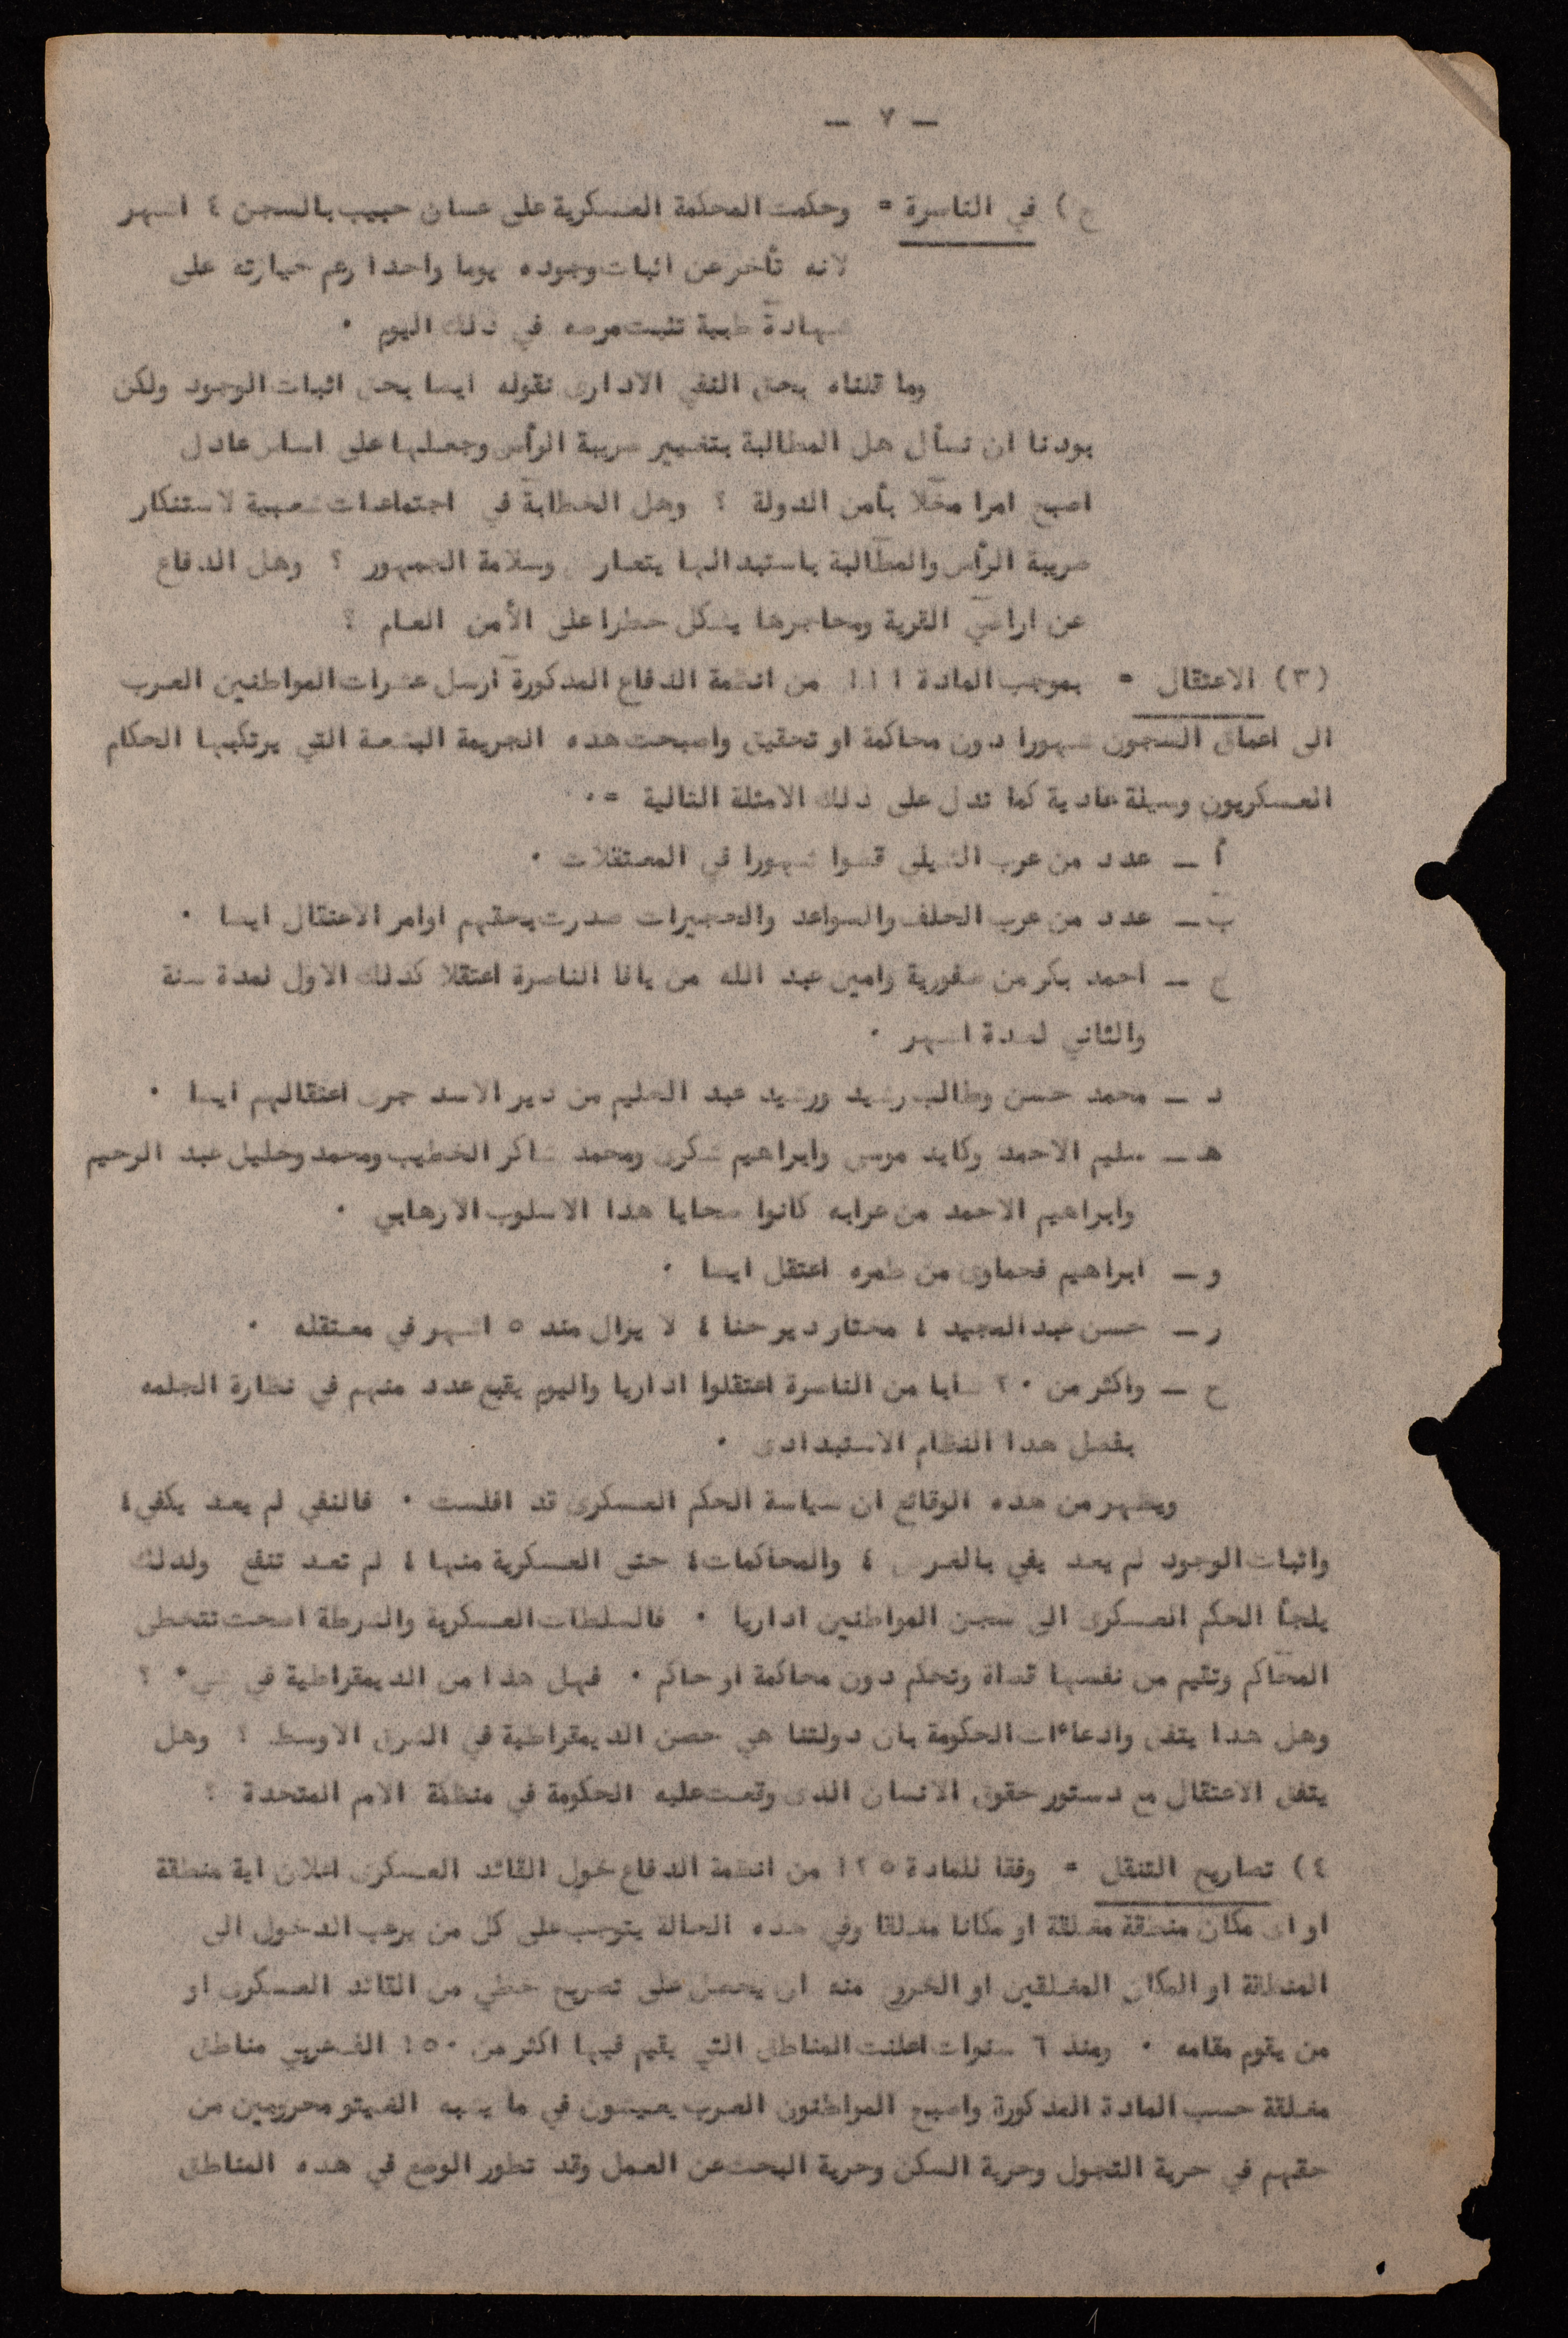 — ٧ —
ح) في الناصرة = وحكمت المحكمة العسكرية على غسان حبيب بالسجن ٤ اشهر
لانه تأخر عن اثبات وجوده يوما واحدا رغم حيازته على
شهادة طبية تثبت مرضه في ذلك اليوم ٠
وما قلناه بحق النفي الادارى نقوله ايضا بحق اثبات الوجود ولكن
بودنا ان نسأل هل المطالبة بتغيير ضريبة الرأس وجعلها على اساس عادل
اصبح امرا مخلا بأمن الدولة ؟ وهل الخطابة في اجتماعات شعبية لاستنكار
ضريبة الرأس والمطالبة باستبدالها يتعارض وسلامة الجمهور ؟ وهل الدفاع
عن اراضي القرية ومحاجرها يشكل خطرا على الأمن العام ؟
(٣) الاعتقال = بموجب المادة ١١١ من انظمة الدفاع المذكورة ارسل عشرات المواطنين العرب
الى اعماق السجون شهورا دون محاكمة او تحقيق واصبحت هذه الجريمة البشعة التي يرتكبها الحكام
العسكريون وسيلة عادية كما تدل على ذلك الامثلة التالية =٠
أ — عدد من عرب الشبلي قضوا شهورا في المعتقلات ٠
ب — عدد من عرب الحلف والسواعد والحجيرات صدرت بحقهم اوامر الاعتقال ايضا ٠
ج — احمد بكر من صفورية وامين عبد الله من يافا الناصرة اعتقلا كذلك الاول لمدة سنة
والثاني لمدة اشهر ٠
د — محمد حسن وطالب رشيد ورشيد عبد الحليم من دير الاسد جرى اعتقالهم ايضا ٠
هـ — سليم الاحمد وكايد موسى وابراهيم شكرى ومحمد شاكر الخطيب ومحمد وخليل عبد الرحيم
وابراهيم الاحمد من عرابه كانوا ضحايا هذا الاسلوب الارهابي ٠
و — ابراهيم فحماوى من طمره اعتقل ايضا ٠
ز — حسن عبد المجيد ، مختار دير حنا ، لا يزال منذ ٥ اشهر في معتقله ٠
ح — واكثر من ٢٠ شابا من الناصرة اعتقلوا اداريا واليوم يقبع عدد منهم في نظارة الجلمه
بفضل هذا النظام الاستبدادى ٠
ويظهر من هذه الوقائع ان سياسة الحكم العسكرى قد افلست ٠ فالنفي لم يعد يكفي ،
واثبات الوجود لم يعد يفي بالغرض ، والمحاكمات ، حتى العسكرية منها ، لم تعد تنفع ولذلك
يلجأ الحكم العسكرى الى سجن المواطنين اداريا ٠ فالسلطات العسكرية والشرطة اضحت تتخطى
المحاكم وتقيم من نفسها قضاة وتحكم دون محاكمة او حاكم ٠ فهل هذا من الديمقراطية في شيء ؟
وهل هذا يتفق وادعاءات الحكومة بان دولتنا هي حصن الديمقراطية في الشرق الاوسط ؟ وهل
يتفق الاعتقال مع دستور حقوق الانسان الذى وقعت عليه الحكومة في منظمة الامم المتحدة ؟
٤) تصاريح التنقل = وفقا للمادة ١٢٥ من انظمة الدفاع خول القائد العسكرى اعلان اية منطقة
او اى مكان منطقة مغلقة او مكانا مغلقا وفي هذه الحالة يتوجب على كل من يرغب الدخول الى
المنطقة او المكان المغلقين او الخروج منه ان يحصل على تصريح خطي من القائد العسكرى او
من يقوم مقامه ٠ ومنذ ٦ سنوات اعلنت المناطق التي يقيم فيها اكثر من ١٥٠ الف عربي مناطق
مغلقة حسب المادة المذكورة واصبح المواطنون العرب يعيشون في ما يشبه الغيتو محرومين من
حقهم في حرية التجول وحرية السكن وحرية البحث عن العمل وقد تطور الوضع في هذه المناطق